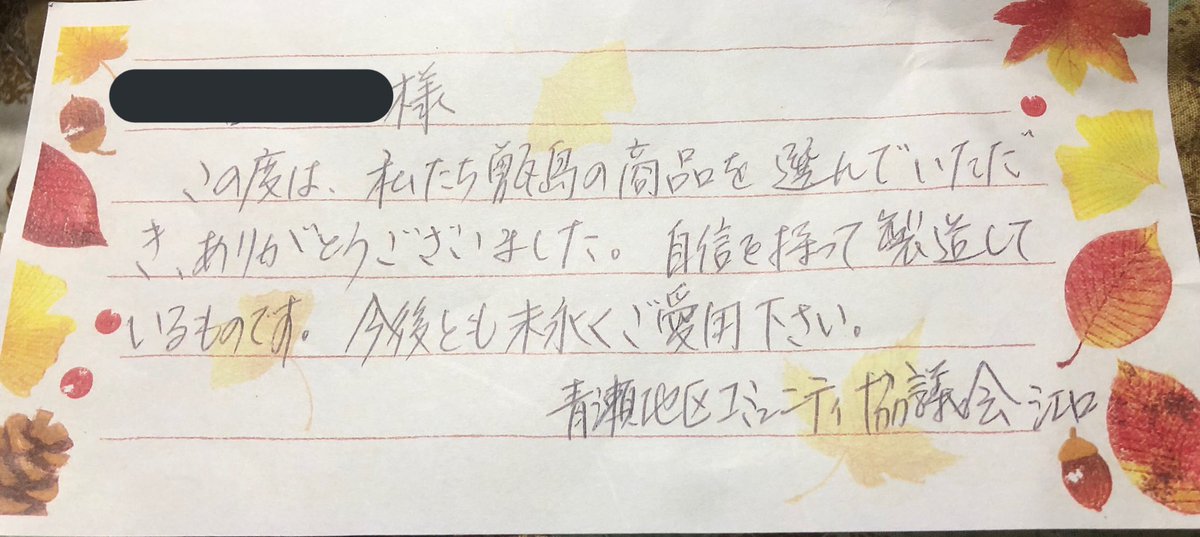 様
この度は、私たち甑島の商品を選んでいただ
き、ありがとうございました。自信を持って製造して
いるものです。今後とも末永くご愛用下さい。
青瀬地区コミュニティ協議会 江口